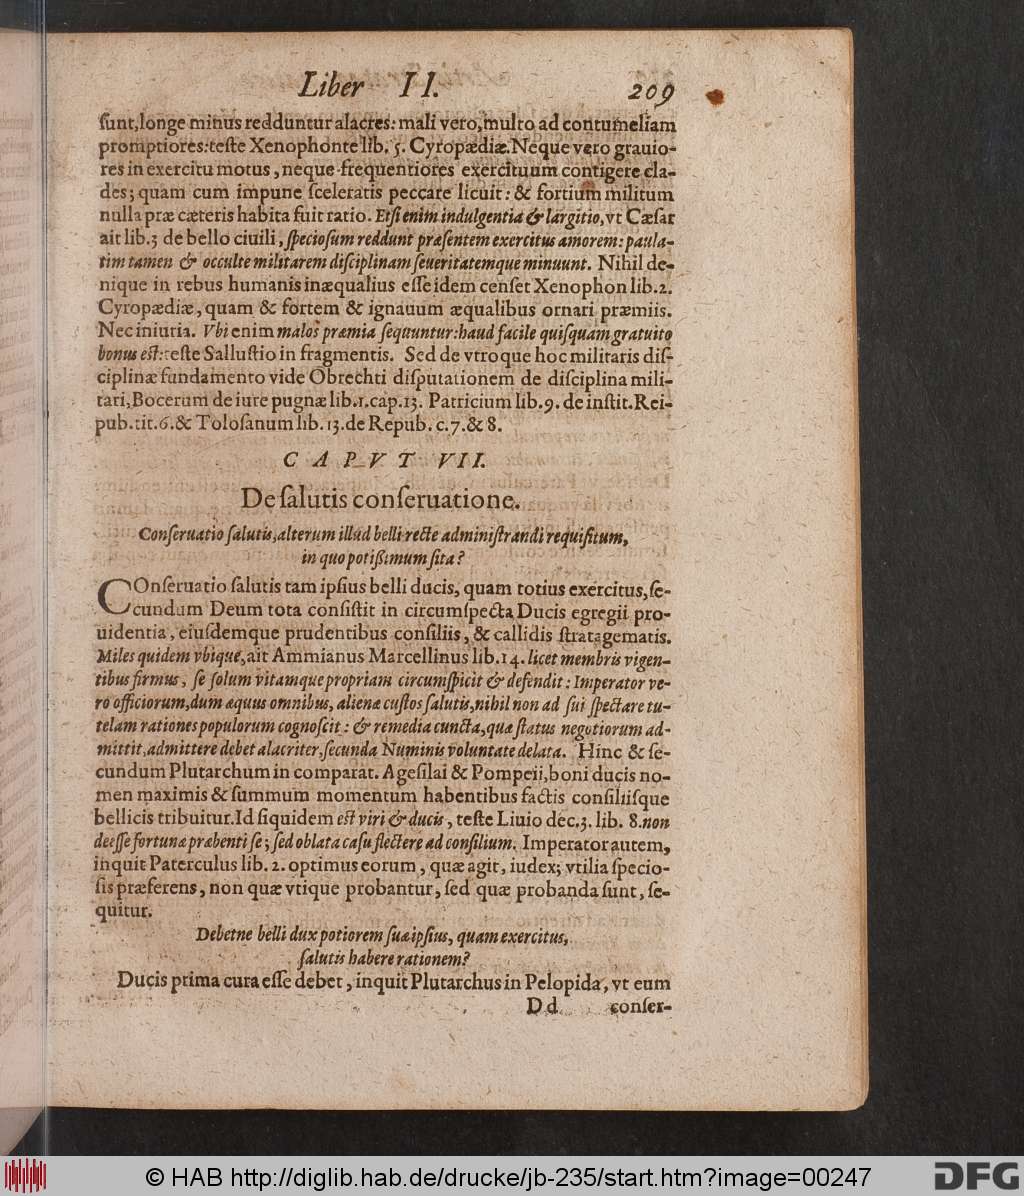 Liber II. 209
ſunt, longe minus redduntur alacres: mali vero, multo ad contumeliam
promptiores: teſte Xenophonte lib. 5. Cyropædiæ. Neque vero grauio-
res in exercitu motus, neque frequentiores exercituum contigere cla-
des; quam cum impune ſceleratis peccare licuit: & fortium militum
nulla præ cæteris habita fuit ratio. Etſi enim indulgentia & largitio, vt Cæſar
ait lib. 3 de bello ciuili, ſpecioſum reddunt præſentem exercitus amorem: paula-
tim tamen & occulte militarem diſciplinam ſeueritatemque minuunt. Nihil de-
nique in rebus humanis inæqualius eſſe idem cenſet Xenophon lib. 2.
Cyropædiæ, quam & fortem & ignauum æqualibus ornari præmiis.
Nec iniuria. Vbi enim malos præmia ſequuntur: haud facile quiſquam gratuito
bonus eſt: teſte Salluſtio in fragmentis. Sed de vtroque hoc militaris diſ-
ciplinæ fundamento vide Obrechti diſputationem de diſciplina mili-
tari, Bocerum de iure pugnæ lib. 1. cap. 13. Patricium lib. 9. de inſtit. Rei-
pub. tit. 6. & Toloſanum lib. 13. de Repub. c. 7. & 8.
CAPVT VII.
De ſalutis conſeruatione.
Conſeruatio ſalutis, alterum illud belli recte adminiſtrandi requiſitum,
in quo potißimum ſita?
COnſeruatio ſalutis tam ipſius belli ducis, quam totius exercitus, ſe-
cundum Deum tota conſiſtit in circumſpecta Ducis egregii pro-
uidentia, eiuſdemque prudentibus conſiliis, & callidis ſtratagematis.
Miles quidem vbique, ait Ammianus Marcellinus lib. 14. licet membris vigen-
tibus firmus, ſe ſolum vitamque propriam circumſpicit & defendit: Imperator ve-
ro officiorum, dum æquus omnibus, alienæ cuſtos ſalutis, nihil non ad ſui ſpectare tu-
telam rationes populorum cognoſcit: & remedia cuncta, quæ ſtatus negotiorum ad-
mittit, admittere debet alacriter, ſecunda Numinis voluntate delata. Hinc & ſe-
cundum Plutarchum in comparat. Ageſilai & Pompeii, boni ducis no-
men maximis & ſummum momentum habentibus factis conſiliiſque
bellicis tribuitur. Id ſiquidem eſt viri & ducis, teſte Liuio dec. 3. lib. 8. non
deeſſe fortunæ præbenti ſe; ſed oblata caſu flectere ad conſilium. Imperator autem,
inquit Paterculus lib. 2. optimus eorum, quæ agit, iudex; vtilia ſpecio-
ſis præferens, non quæ vtique probantur, ſed quæ probanda ſunt, ſe-
quitur.
Debetne belli dux potiorem ſua ipſius, quam exercitus,
ſalutis habere rationem?
Ducis prima cura eſſe debet, inquit Plutarchus in Pelopida, vt eum
D d conſer-
© HAB http://diglib.hab.de/drucke/jb-235/start.htm?image=00247
DFG